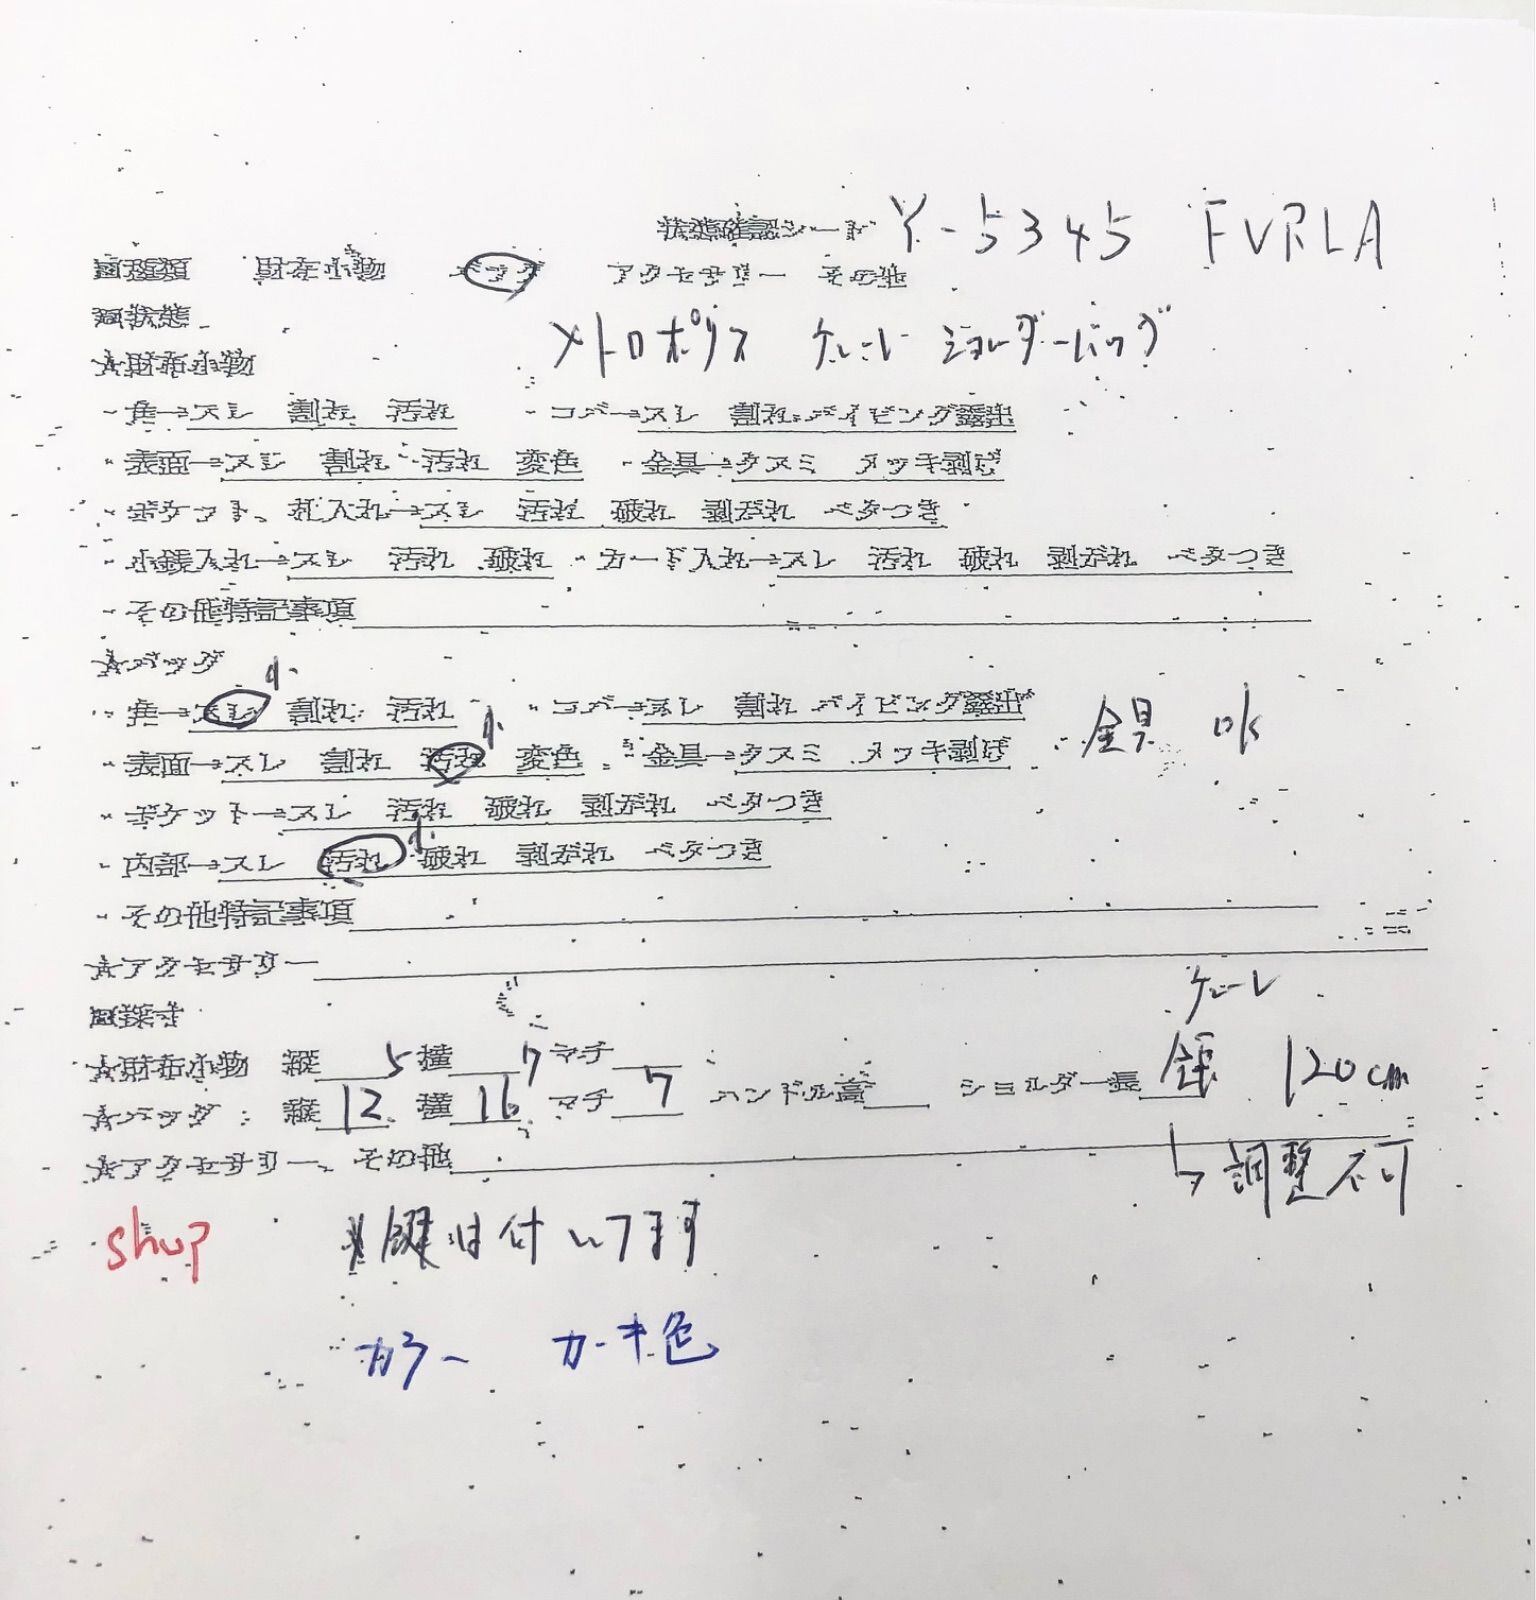 状態確認シート Y-5345 FURLA
回種類 財布小物 バッグ アクセサリー その他
回状態
メトロポリス ショルダーバッグ
☆財布小物
・角→スレ 割れ 汚れ ・コバ→スレ 割れ パイピング露出
・表面→スレ 割れ 汚れ 変色 ・金具→クスミ メッキ剥げ
・ポケット、札入れ→スレ 汚れ 破れ 剥がれ ベタつき
・小銭入れ→スレ 汚れ 破れ ・カード入れ→スレ 汚れ 破れ 剥がれ ベタつき
・その他特記事項
☆バッグ
小
・角→スレ 割れ 汚れ ・コバ→スレ 割れ パイピング露出
小
・表面→スレ 割れ 汚れ 変色 ・金具→クスミ メッキ剥げ 金具 ok
・ポケット→スレ 汚れ 破れ 剥がれ ベタつき
小
・内部→スレ 汚れ 破れ 剥がれ ベタつき
・その他特記事項
☆アクセサリー
回採寸
☆財布小物 縦 5 横 7 マチ
☆バッグ 縦 12 横 16 マチ 7 ハンドル高 ショルダー長 120cm
☆アクセサリー、その他
↳調整不可
shop ※鍵は付いてます
カラー カーキ色